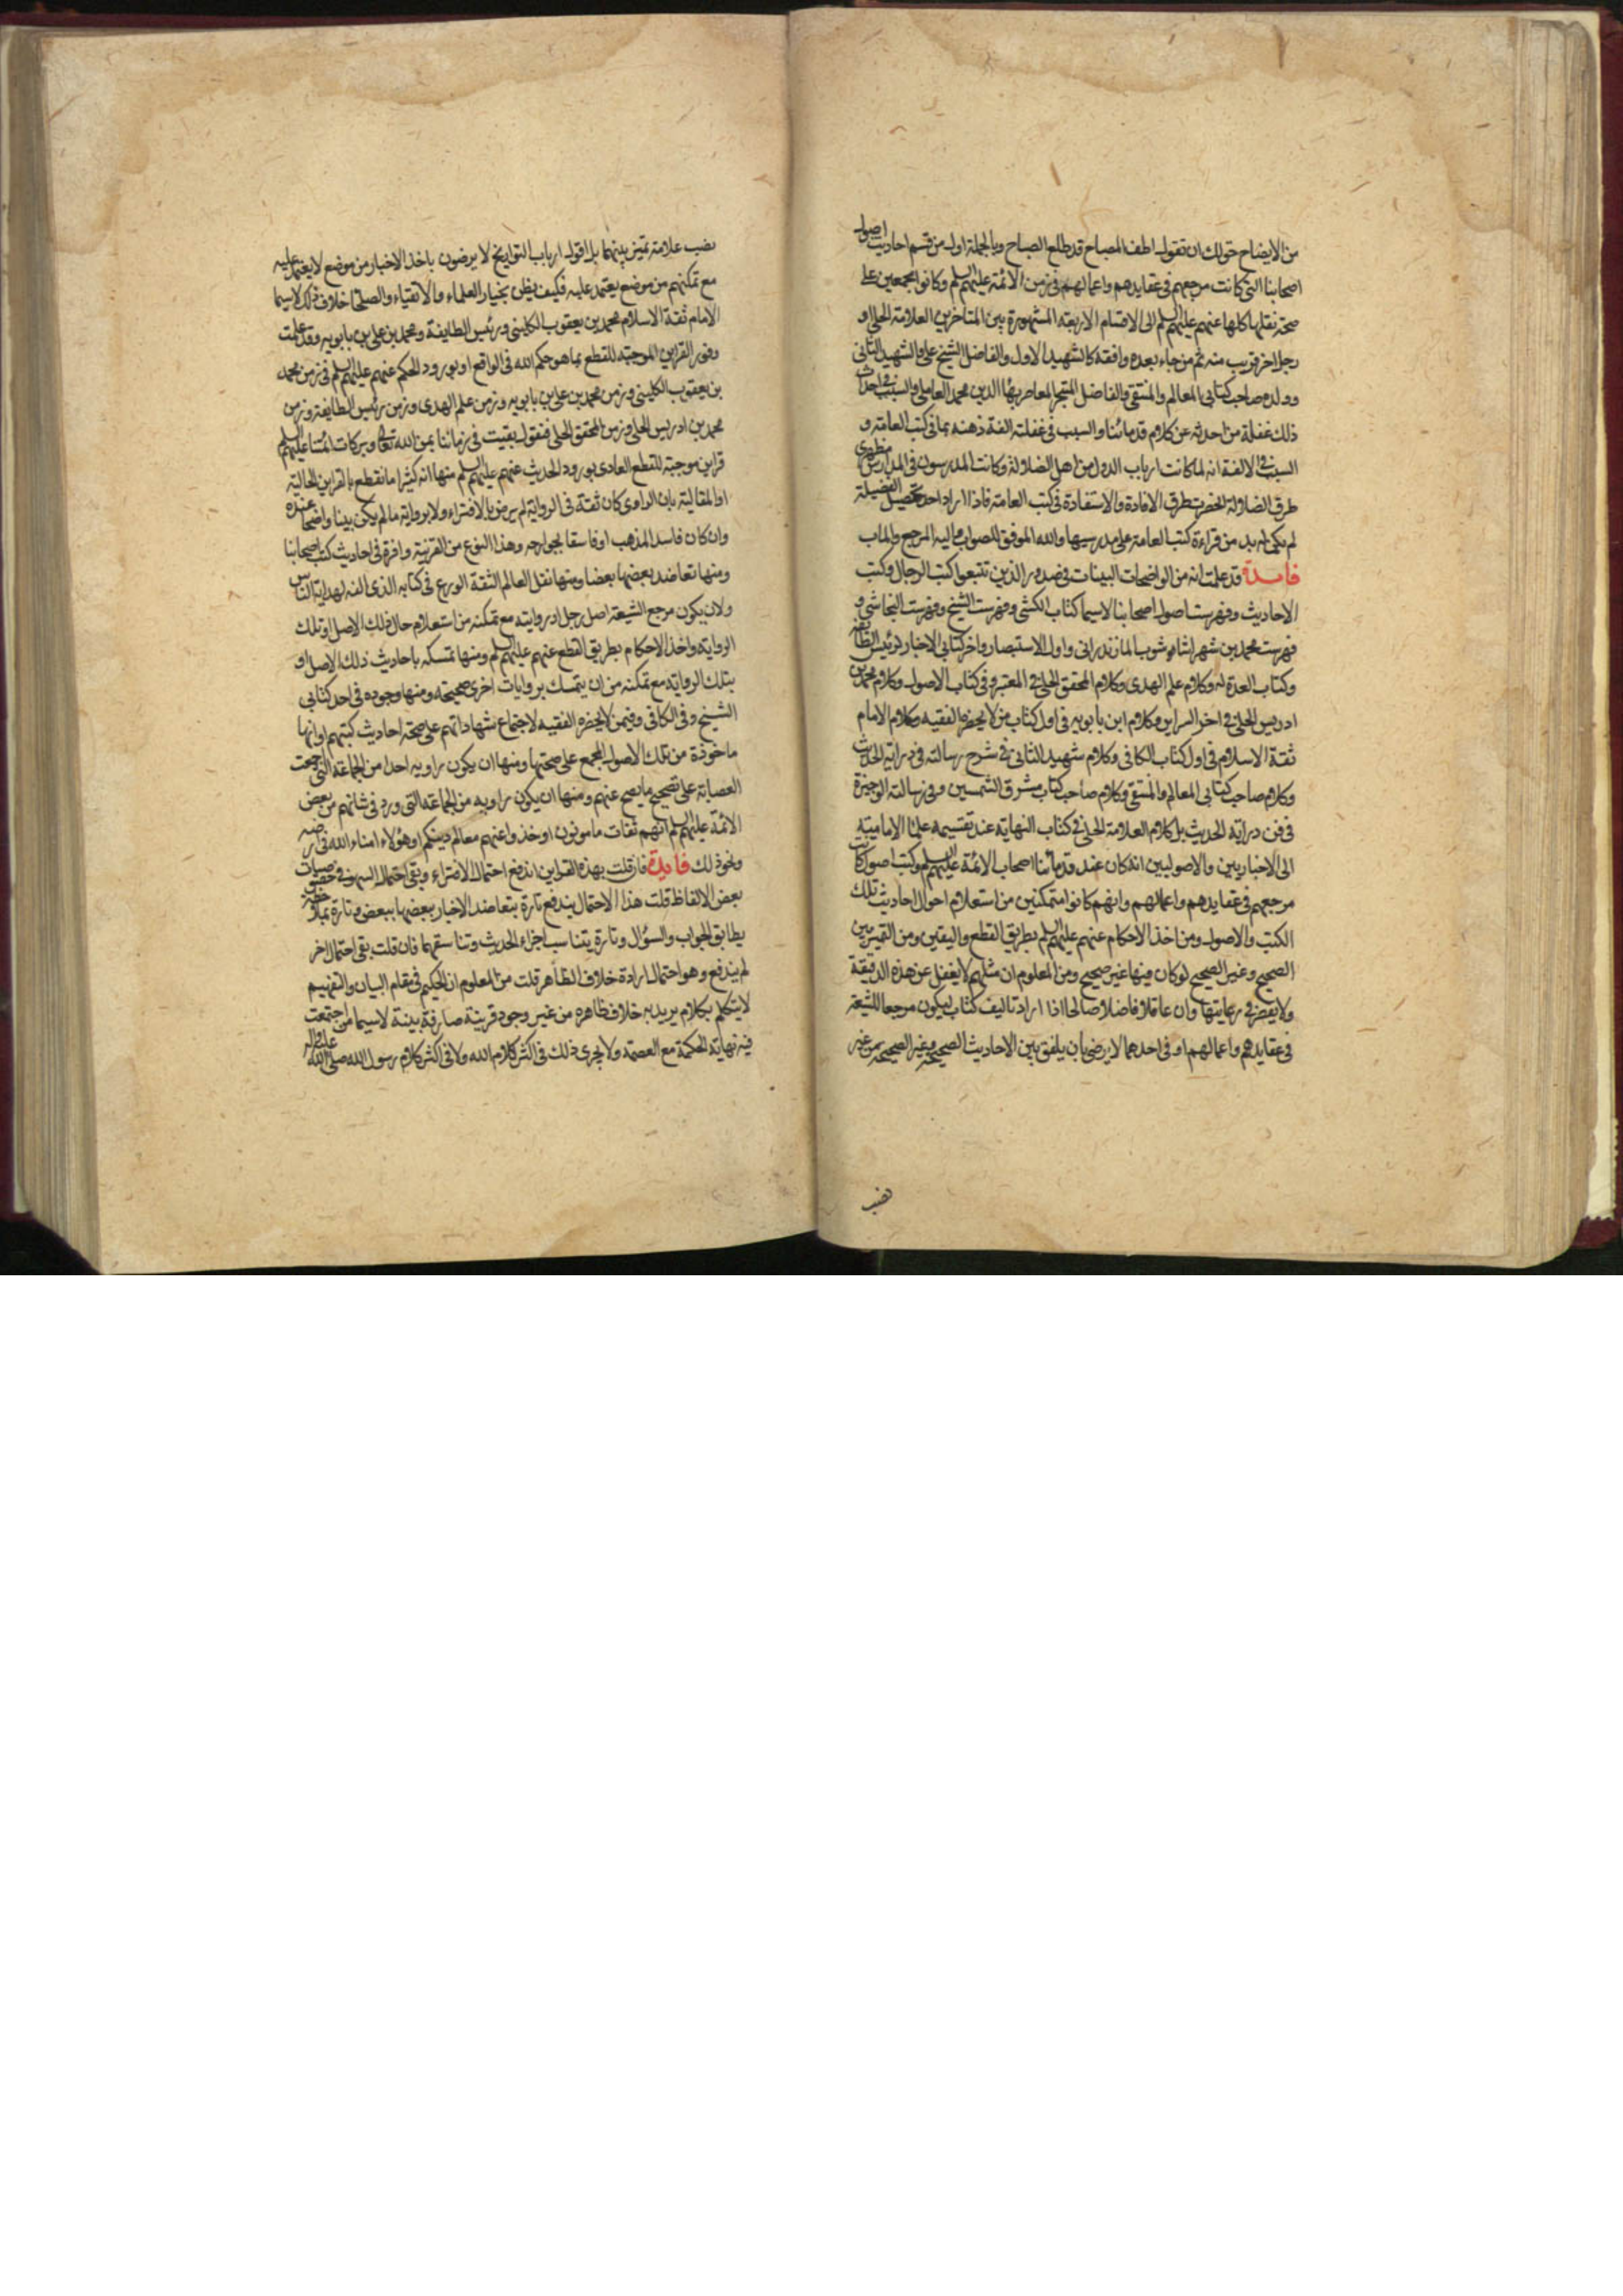 من الايضاح حق لك ان تقول اطف المصباح قد طلع الصباح وبالجملة اول من قسم احاديث اصول
اصحابنا التي كانت مرجعهم في عقايدهم واعمالهم في زمن الائمة عليهم السلم وكانوا مجمعين على
صحة نقلها كلها عنهم عليهم السلم الى الاقسام الاربعة المشهورة بين المتاخرين العلامة الحلي او
رجل اخر قريب منه ثم من جاء بعده وافقه كالشهيد الاول والفاضل الشيخ علي والشهيد الثاني
وولده صاحب كتابي المعالم والمنتقى والفاضل المتبحر المعاصر بهاء الدين محمد العاملي والسبب في احداث
ذلك غفلة من احدثه عن كلام قدمائنا والسبب في غفلته الفة ذهنه بما في كتب العامة و
السبب في الالفة انه لما كانت ارباب الدول من اهل الضلالة وكانت المدرسون في المدارس مظهري
طرق الضلالة انحصرت طرق الافادة والاستفادة في كتب العامة فاذا اراد احد تحصيل الفضيلة
لم يكن له بد من قراءة كتب العامة على مدرسيها والله الموفق للصواب واليه المرجع والماب
فايدة قد علمت انه من الواضحات البينات في صدور الذين تتبعوا كتب الرجال وكتب
الاحاديث وفهرست اصول اصحابنا لاسيما كتاب الكشي وفهرست الشيخ وفهرست النجاشي و
فهرست محمد بن شهر اشوب المازندراني واول الاستبصار واخر كتابي الاخبار لرئيس الطائفة
وكتاب العدة له وكلام علم الهدى وكلام المحقق الحلي في المعتبر وفي كتاب الاصول وكلام محمد بن
ادريس الحلي في اخر السراير وكلام ابن بابويه في اول كتاب من لا يحضره الفقيه وكلام الامام
ثقة الاسلام في اول كتاب الكافي وكلام شهيد الثاني في شرح رسالته في دراية الحديث
وكلام صاحب كتابي المعالم والمنتقى وكلام صاحب كتاب مشرق الشمسين وفي رسالته الوجيزة
في فن دراية الحديث بل كلام العلامة الحلي في كتاب النهاية عند تقسيمه علماء الامامية
الى الاخباريين والاصوليين انه كان عند قدمائنا اصحاب الائمة عليهم السلم كتب اصول كانت
مرجعهم في عقايدهم واعمالهم وانهم كانوا متمكنين من استعلام احوال احاديث تلك
الكتب والاصول ومن اخذ الاحكام عنهم عليهم السلم بطريق القطع واليقين ومن التمييز بين
الصحيح وغير الصحيح لو كان فيها غير صحيح ومن المعلوم ان مثلهم لا يغفل عن هذه الدقيقة
ولا يقصر في رعايتها وان عاقلا فاضلا صالحا اذا اراد تاليف كتاب ليكون مرجعا للشيعة
في عقايدهم واعمالهم او في احدهما لا يرضى بان يلفق بين الاحاديث الصحيحة وغير الصحيحة من غير
نصب
نصب علامة تميز بينهما بل اقول ارباب التواريخ لا يرضون باخذ الاخبار من موضع لا يعتمد عليه
مع تمكنهم من موضع يعتمد عليه فكيف يظن بخيار العلماء والاتقياء والصلحاء خلاف ذلك لاسيما
الامام ثقة الاسلام محمد بن يعقوب الكليني ورئيس الطايفة ومحمد بن علي بن بابويه وقد علمت
وفور القراين الموجبة للقطع بما هو حكم الله في الواقع او بورود الحكم عنهم عليهم السلم في زمن محمد
بن يعقوب الكليني وزمن محمد بن علي بن بابويه وزمن علم الهدى وزمن رئيس الطايفة وزمن
محمد بن ادريس الحلي وزمن المحقق الحلي فنقول بقيت في زماننا بمن الله تعالى وبركات ائمتنا عليهم السلم
قراين موجبة للقطع العادي بورود الحديث عنهم عليهم السلم منها انه كثيرا ما نقطع بالقراين الحالية
او المقالية بان الراوي كان ثقة في الرواية لم يرض بالافتراء ولا برواية ما لم يكن بينا واضحا عنده
وان كان فاسد المذهب او فاسقا بجوارحه وهذا النوع من القرينة وافرة في احاديث كتب اصحابنا
ومنها تعاضد بعضها بعضا ومنها نقل العالم الثقة الورع في كتابه الذي الفه لهداية الناس
ولان يكون مرجع الشيعة اصل رجل او روايته مع تمكنه من استعلام حال ذلك الاصل او تلك
الرواية واخذ الاحكام بطريق القطع عنهم عليهم السلم ومنها تمسكه باحاديث ذلك الاصل او
بتلك الرواية مع تمكنه من ان يتمسك بروايات اخرى صحيحة ومنها وجوده في احد كتابي
الشيخ وفي الكافي وفي من لا يحضره الفقيه لاجتماع شهاداتهم على صحة احاديث كتبهم او انها
ماخوذة من تلك الاصول المجمع على صحتها ومنها ان يكون راويه احدا من الجماعة التي اجمعت
العصابة على تصحيح ما يصح عنهم ومنها ان يكون راويه من الجماعة التي ورد في شانهم من بعض
الائمة عليهم السلم انهم ثقات مامونون او خذوا عنهم معالم دينكم او هؤلاء امناء الله في ارضه
ونحو ذلك فايدة فان قلت بهذه القراين اندفع احتمال الافتراء وبقي احتمال السهو في خصوصيات
بعض الالفاظ قلت هذا الاحتمال يندفع تارة بتعاضد الاخبار بعضها ببعض وتارة بملاحظة
يطابق الجواب والسؤال وتارة يتناسب اجزاء الحديث وتناسقهما فان قلت بقي احتمال اخر
لم يندفع وهو احتمال ارادة خلاف الظاهر قلت من المعلوم ان الحكيم في مقام البيان والتفهيم
لا يتكلم بكلام يريد به خلاف ظاهره من غير وجود قرينة صارفة بينة لاسيما من اجتمعت
فيه نهاية الحكمة مع العصمة ولا يجري ذلك في اكثر كلام الله ولا في اكثر كلام رسول الله صلى الله عليه واله